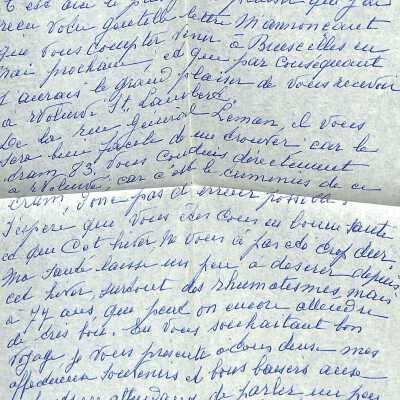 C'est avec le plus
reçu votre gentille lettre m'annonçant
que vous compter venir à Bruxelles en
mai prochain, et que par conséquant
j'aurais le grand plaisir de vous recevoir
à Woluwé St. Lambert.
De la rue général Leman, il vous
sera bien facile de me trouver, car le
tram 23, vous conduis directement
à Woluwé, car c'est le terminus de ce
tram, donc pas d'erreur possible.
J'espère que vous êtes tous en bonne santé
et que cet hiver ne vous à pas été trop dur
Ma santé laisse un peu a désirer depuis
cet hiver surtout des rhumatismes, mais
à 74 ans, que peut on encore attendre
de très bon. En vous souhaitant bon
voyage je vous présente à tous deux mes
affectueux souvenirs et bons baisers aux
attendant de parler un peu